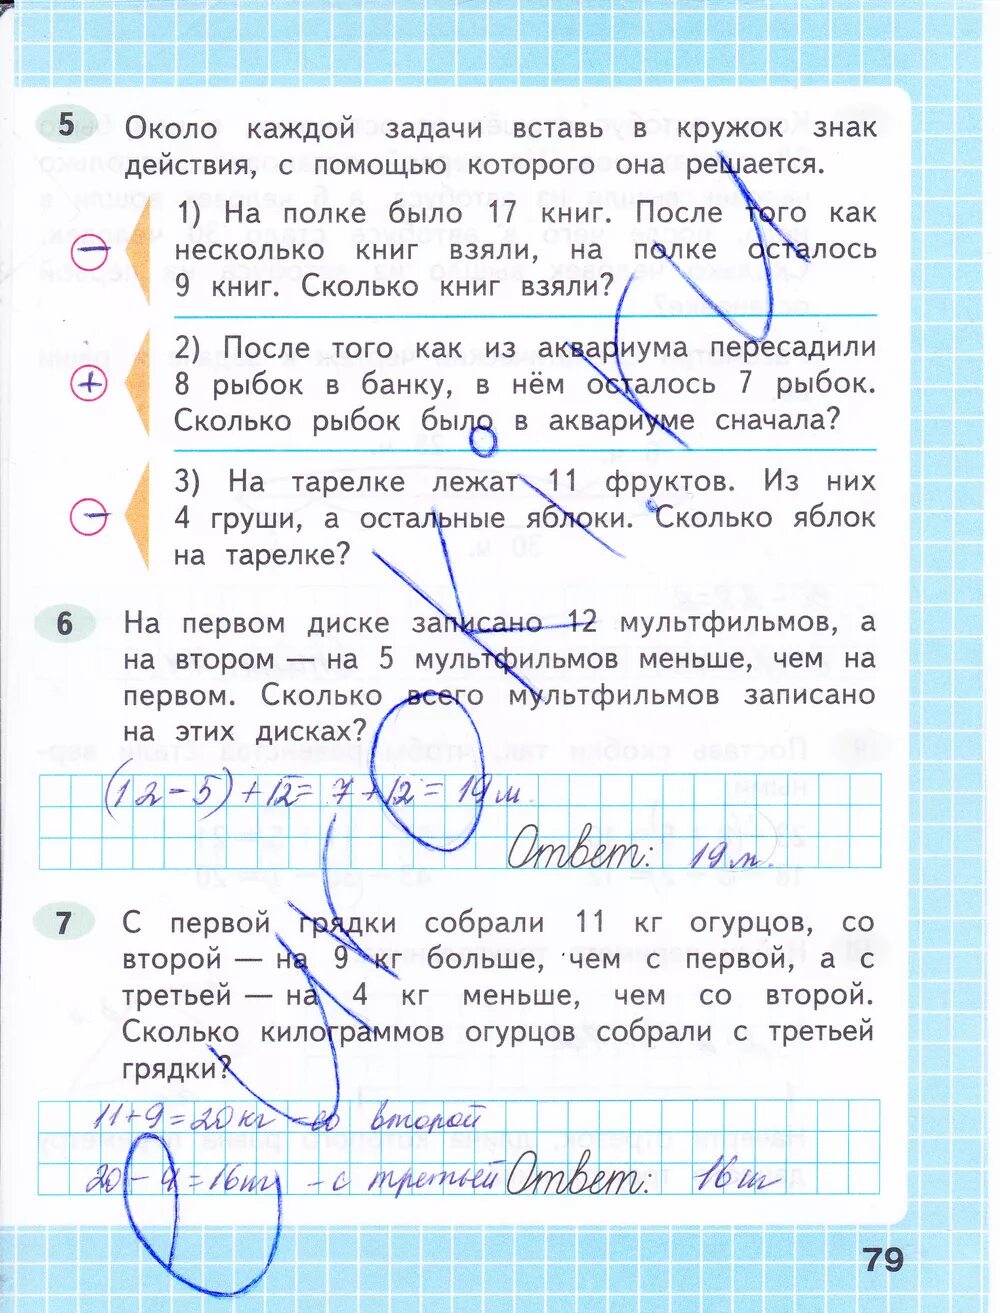 5 Около каждой задачи вставь в кружок знак
действия, с помощью которого она решается.
1) На полке было 17 книг. После того как
− несколько книг взяли, на полке осталось
9 книг. Сколько книг взяли?
2) После того как из аквариума пересадили
+ 8 рыбок в банку, в нём осталось 7 рыбок.
Сколько рыбок было в аквариуме сначала?
3) На тарелке лежат 11 фруктов. Из них
− 4 груши, а остальные яблоки. Сколько яблок
на тарелке?
6 На первом диске записано 12 мультфильмов, а
на втором — на 5 мультфильмов меньше, чем на
первом. Сколько всего мультфильмов записано
на этих дисках?
(12-5)+12=7+12=19м.
Ответ: 19м.
7 С первой грядки собрали 11 кг огурцов, со
второй — на 9 кг больше, чем с первой, а с
третьей — на 4 кг меньше, чем со второй.
Сколько килограммов огурцов собрали с третьей
грядки?
11+9=20кг -со второй
20-4=16кг -с третьей Ответ: 16кг
79